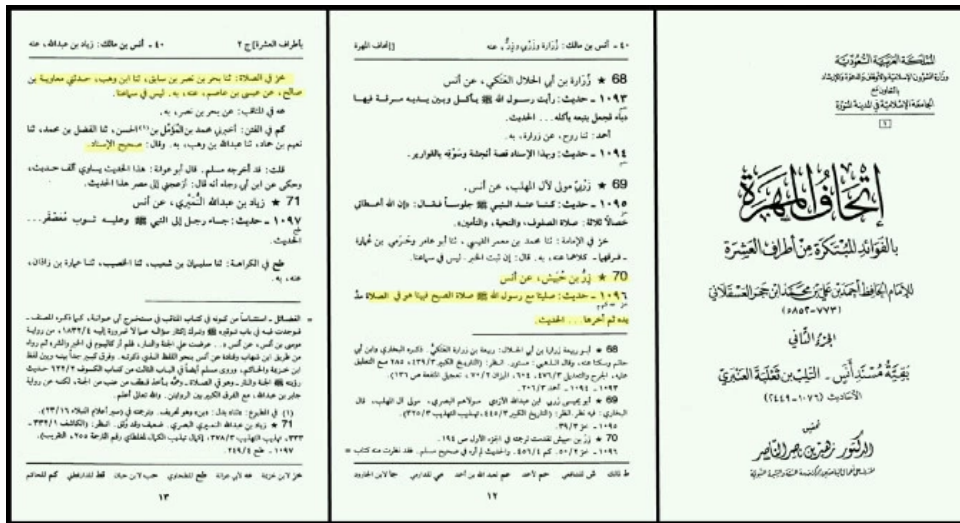 المملكة العربية السعودية
وزارة الشؤون الإسلامية والأوقاف والدعوة والإرشاد
بالتعاون مع
الجامعة الإسلامية في المدينة المنورة
إتحاف المهرة
بالفوائد المبتكرة من أطراف العشرة
للإمام الحافظ أحمد بن علي بن محمد ابن حجر العسقلاني
(٧٧٣-٨٥٢هـ)
الجزء الثاني
بقية مسند أنس - التلب بن ثعلبة العنبري
الأحاديث (١٠٧٦-٢٤٤٩)
تحقيق
الدكتور زهير بن ناصر الناصر
٤٠ - أنس بن مالك: زرارة وزربي وزر، عنه
[إتحاف المهرة
68 ★ زرارة بن أبي الحلال العتكي، عن أنس
١٠٩٣ - حديث: رأيت رسول الله ﷺ يأكل وبين يديه مرقة فيها
دباء فجعل يتبعه يأكله... الحديث.
أحمد: ثنا روح، عن زرارة، به.
١٠٩٤ - حديث: وبهذا الإسناد قصة أنجشة وسوقه بالقوارير.
69 ★ زربي مولى لآل المهلب، عن أنس.
١٠٩٥ - حديث: كنا عند النبي ﷺ جلوساً فقال: «إن الله أعطاني
خصالاً ثلاثة: صلاة الصفوف، والتحية، والتأمين».
خز في الإمامة: ثنا محمد بن معمر القيسي، ثنا أبو عامر وحرمي بن عمارة
- فرقهما - كلاهما عنه، به. قال: إن ثبت الخبر. ليس في سماعنا.
70 ★ زر بن حبيش، عن أنس
١٠٩٦ - حديث: صلينا مع رسول الله ﷺ صلاة الصبح فبينا هو في الصلاة مد
يده ثم أخرها... الحديث.
68 ★ أبو ربيعة زرارة بن أبي الحلال: ربيعة بن زرارة العتكي. ذكره البخاري وابن أبي
حاتم وسكتا عنه، وقال الذهبي: مستور. انظر: (التاريخ الكبير ٤٣٩/٣،
عليه، الجرح والتعديل
١٠٩٣ - ١٠٩٤ - أحمد ٢٠٦/٣.
69 ★ أبو يحيى زربي ابن عبدالله الأزدي مولاهم البصري، مولى آل المهلب، قال
البخاري: فيه نظر. انظر: (التاريخ الكبير ٤٤٥/٣، تهذيب التهذيب ٣٢٥/٣)
١٠٩٥ - خز ٣٩/٣.
70 ★ زر بن حبيش تقدمت ترجمته في الجزء الأول ص ١٩٤.
١٠٩٦ - خز ٥٠/٢، كم ٤٥٦/٤. والحديث لم أره في صحيح مسلم. فقد نظرت منه كتاب =
ط لمالك ش للشافعي حم لأحمد عم لعبد الله بن أحمد مي للدارمي جا لابن الجارود
١٢
٤٠ - أنس بن مالك: زياد بن عبدالله، عنه
بأطراف العشرة] ج ٢
خز في الصلاة: ثنا بحر بن نصر بن سابق، ثنا ابن وهب، حدثني معاوية بن
صالح، عن عيسى بن عاصم، عنه، به. ليس في سماعنا.
عه في المناقب: عن بحر بن نصر، به.
كم في الفتن: أخبرني محمد بن المؤمل بن (١) الحسن، ثنا الفضل بن محمد، ثنا
نعيم بن حماد، ثنا عبدالله بن وهب، به. وقال: صحيح الإسناد.
قلت: قد أخرجه مسلم. قال أبو عوانة: هذا الحديث يساوي ألف حديث،
وحكى عن ابن أبي رجاء أنه قال: أزعجني إلى مصر هذا الحديث.
71 ★ زياد بن عبدالله النميري، عن أنس
١٠٩٧ - حديث: جاء رجل إلى النبي ﷺ وعليه ثوب معصفر...
الحديث.
طح في الكراهة: ثنا سليمان بن شعيب، ثنا الخصيب، ثنا عمارة بن زاذان،
عنه، به.
= الفضائل - استئناساً من كونه في كتاب المناقب في مستخرج أبي عوانة، كما ذكره المصنف -
فوجدت فيه في باب توقيره ﷺ وترك إكثار سؤاله عما لا ضرورة إليه ١٨٣٢/٤، من رواية
موسى بن أنس، عن أنس
من طريق ابن شهاب وقتادة عن أنس بنحو اللفظ الذي ذكرته. وفرق كبير جداً بينه وبين لفظ
ابن خزيمة والحاكم، وروى مسلم أيضاً في الباب الثالث من كتاب الكسوف ٦٢٢/٢ حديث
رؤيته ﷺ الجنة والنار - وهو في الصلاة - وهمه بأخذ قطف من عنب من الجنة، لكنه عن رواية
جابر بن عبدالله، مع الفرق الكبير بين الروايتين. والله تعالى أعلم.
(١) في المطبوع: «ثنا» بدل: «بن» وهو تحريف. وترجمته في (سير أعلام النبلاء ٢٣/١٦)
71 ★ زياد بن عبدالله النميري البصري. ضعيف وقد وثق. انظر: (الكاشف
١٠٩٧ - طح ٢٤٩/٤.
خز لابن خزيمة عه لأبي عوانة طح للطحاوي حب لابن حبان قط للدارقطني كم للحاكم
١٣